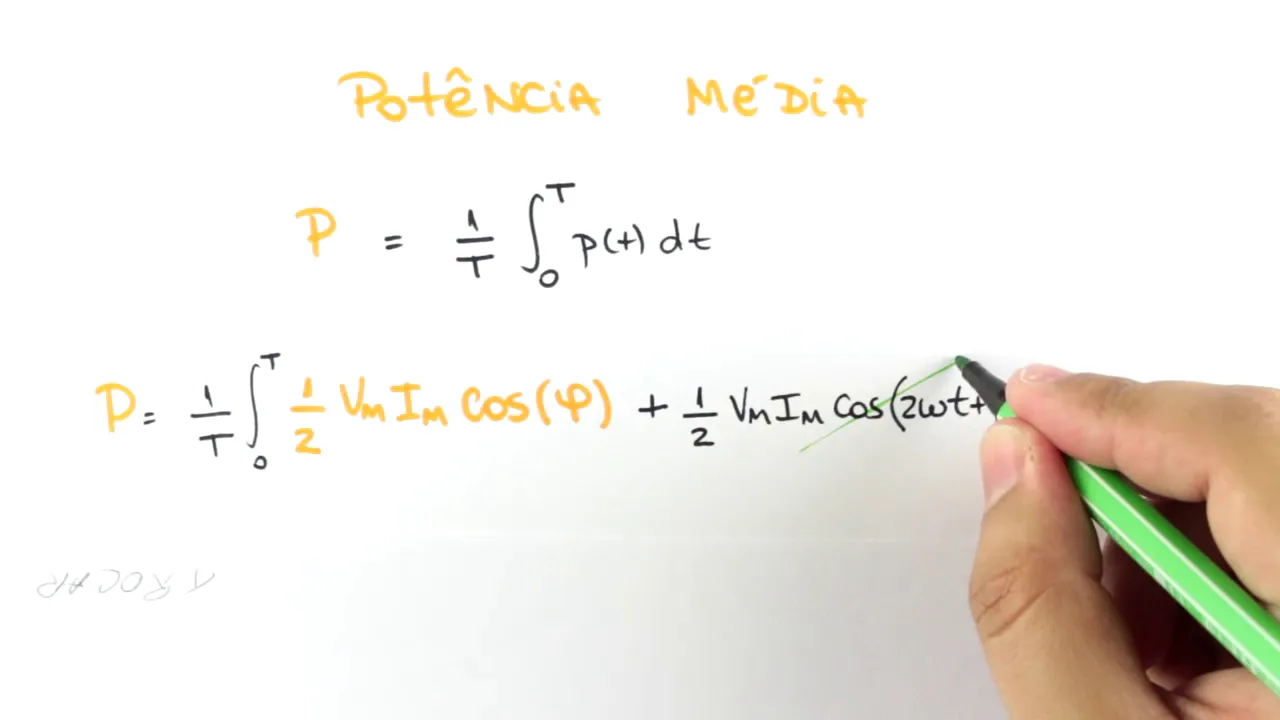 POTÊNCIA MÉDIA
P = 1/T ∫₀ᵀ p(t) dt
P = 1/T ∫₀ᵀ 1/2 VM IM Cos(φ) + 1/2 VM IM Cos(2ωt+
TROCAR